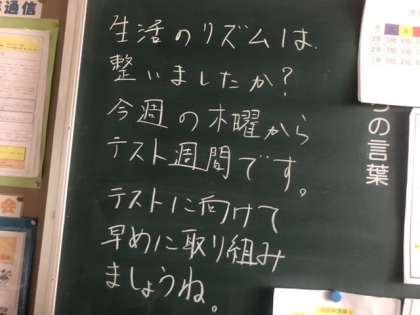 通信
生活のリズムは
整いましたか?
今週の木曜から
テスト週間です。
テストに向けて
早めに取り組み
ましょうね。
の言葉